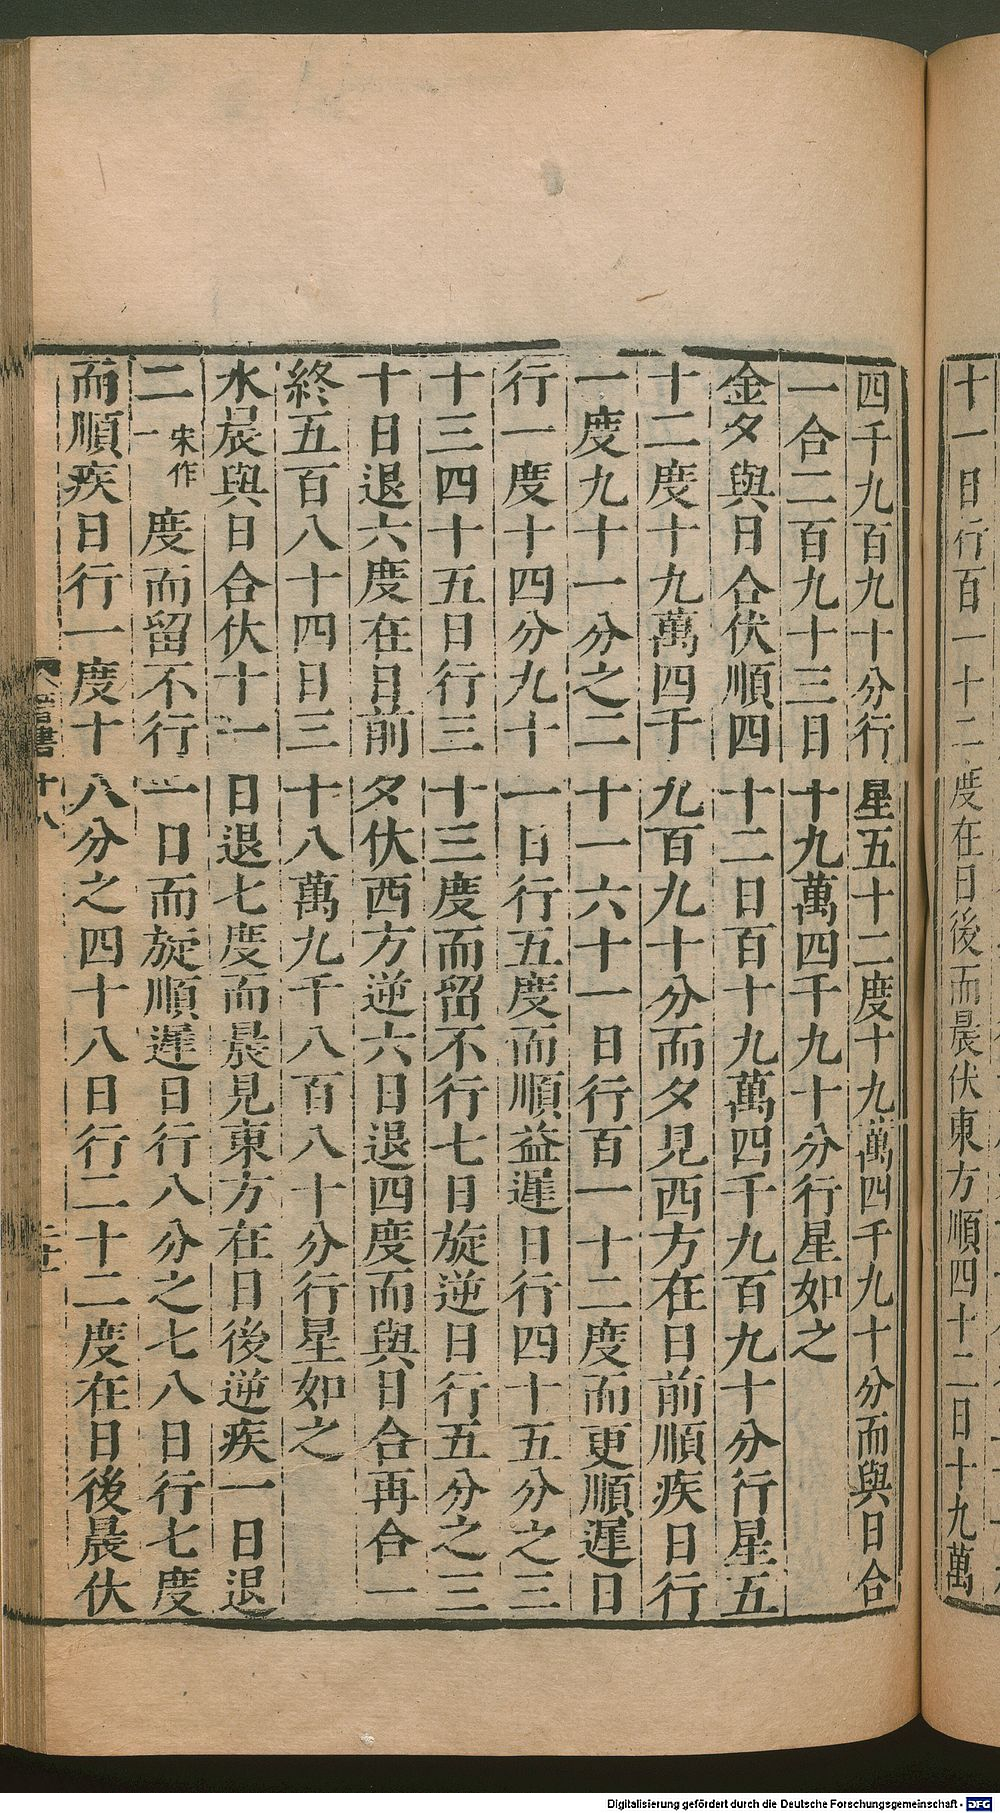 十一日行百一十二度在日後而晨伏東方順四十二日十九萬
四千九百九十分行星五十二度十九萬四千九十分而與日合
一合二百九十三日十九萬四千九十分行星如之
金夕與日合伏順四十二日百十九萬四千九百九十分行星五
十二度十九萬四千九百九十分而夕見西方在日前順疾日行
一度九十一分之二十一六十一日行百一十二度而更順遲日
行一度十四分九十一日行五度而順益遲日行四十五分之三
十三四十五日行三十三度而留不行七日旋逆日行五分之三
十日退六度在日前夕伏西方逆六日退四度而與日合再合一
終五百八十四日三十八萬九千八百八十分行星如之
水晨與日合伏十一日退七度而晨見東方在日後逆疾一日退
二宋作一度而留不行一日而旋順遲日行八分之七八日行七度
而順疾日行一度十八分之四十八日行二十二度在日後晨伏
晉書十八
Digitalisierung gefördert durch die Deutsche Forschungsgemeinschaft - DFG